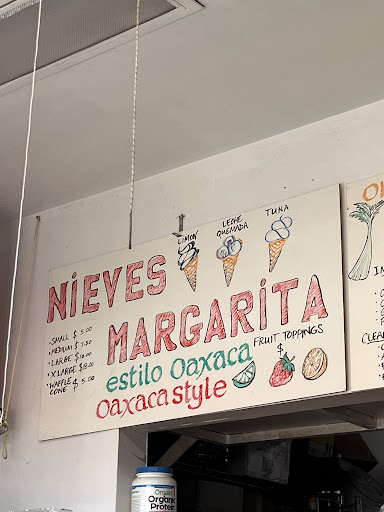 NIEVES
MARGARITA
estilo Oaxaca
Oaxaca style
LIMON
LECHE
QUEMADA
TUNA
SMALL $ 5.00
• MEDIUM $ 7.50
• LARGE $
X LARGE $
• WAFFLE $ 5.00
CONE
FRUIT TOPPINGS
$
Organic
Protein